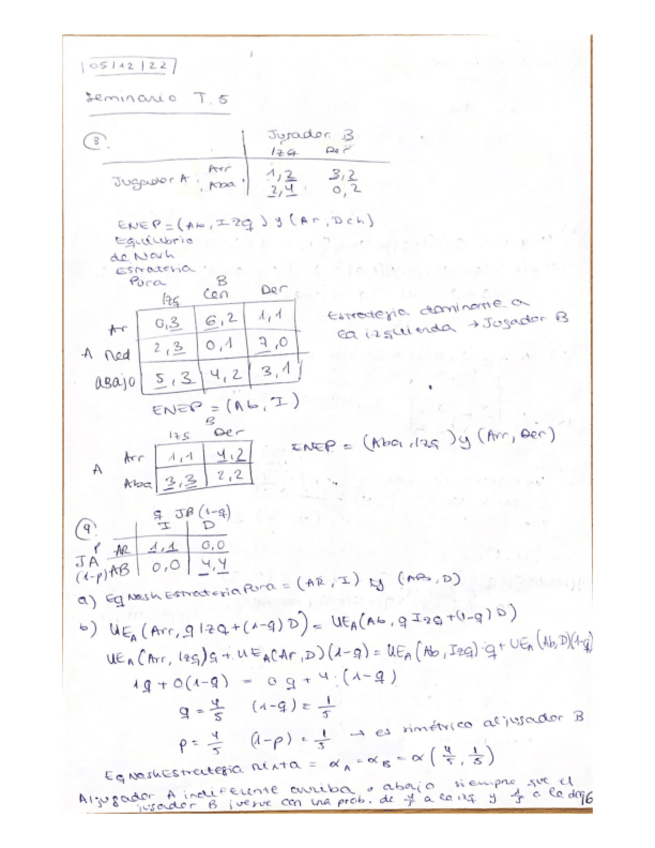 05/12/22
Seminario T.5
3.
Jugador B
Izq Der
Jugador A: Arr 1,2 3,2
Aba. 2,4 0,2
ENEP = (Ab, Izq) y (Ar, Dch)
Equilibrio
de Nash
Estrategia
Pura
B
Izq Cen Der
Ar 0,3 6,2 1,1
A Med 2,3 0,1 7,0
abajo 5,3 4,2 3,1
Estrategia dominante a
la izquierda → Jugador B
ENEP = (Ab, I)
B
Izq Der
A Arr 1,1 4,2
Aba 3,3 2,2
ENEP = (Aba, Izq) y (Arr, Der)
4.
q JB (1-q)
I D
P AR 1,1 0,0
JA
(1-p) AB 0,0 4,4
a) Eq Nash Estrategia Pura = (AR, I) y (AB, D)
b) UE_A (Arr, q Izq + (1-q) D) = UE_A (Ab, q Izq + (1-q) D)
UE_A (Arr, Izq) q + UE_A (Ar, D) (1-q) = UE_A (Ab, Izq) · q + UE_A (Ab, D) (1-q)
1q + 0(1-q) = 0q + 4 · (1-q)
q = 4/5 (1-q) = 1/5
p = 4/5 (1-p) = 1/5 → es simétrico al jugador B
Eq Nash Estrategia Mixta = α_A = α_B = α (4/5, 1/5)
Al jugador A indiferente arriba o abajo siempre que el
jugador B juegue con una prob. de 4/5 a la izq y 1/5 a la